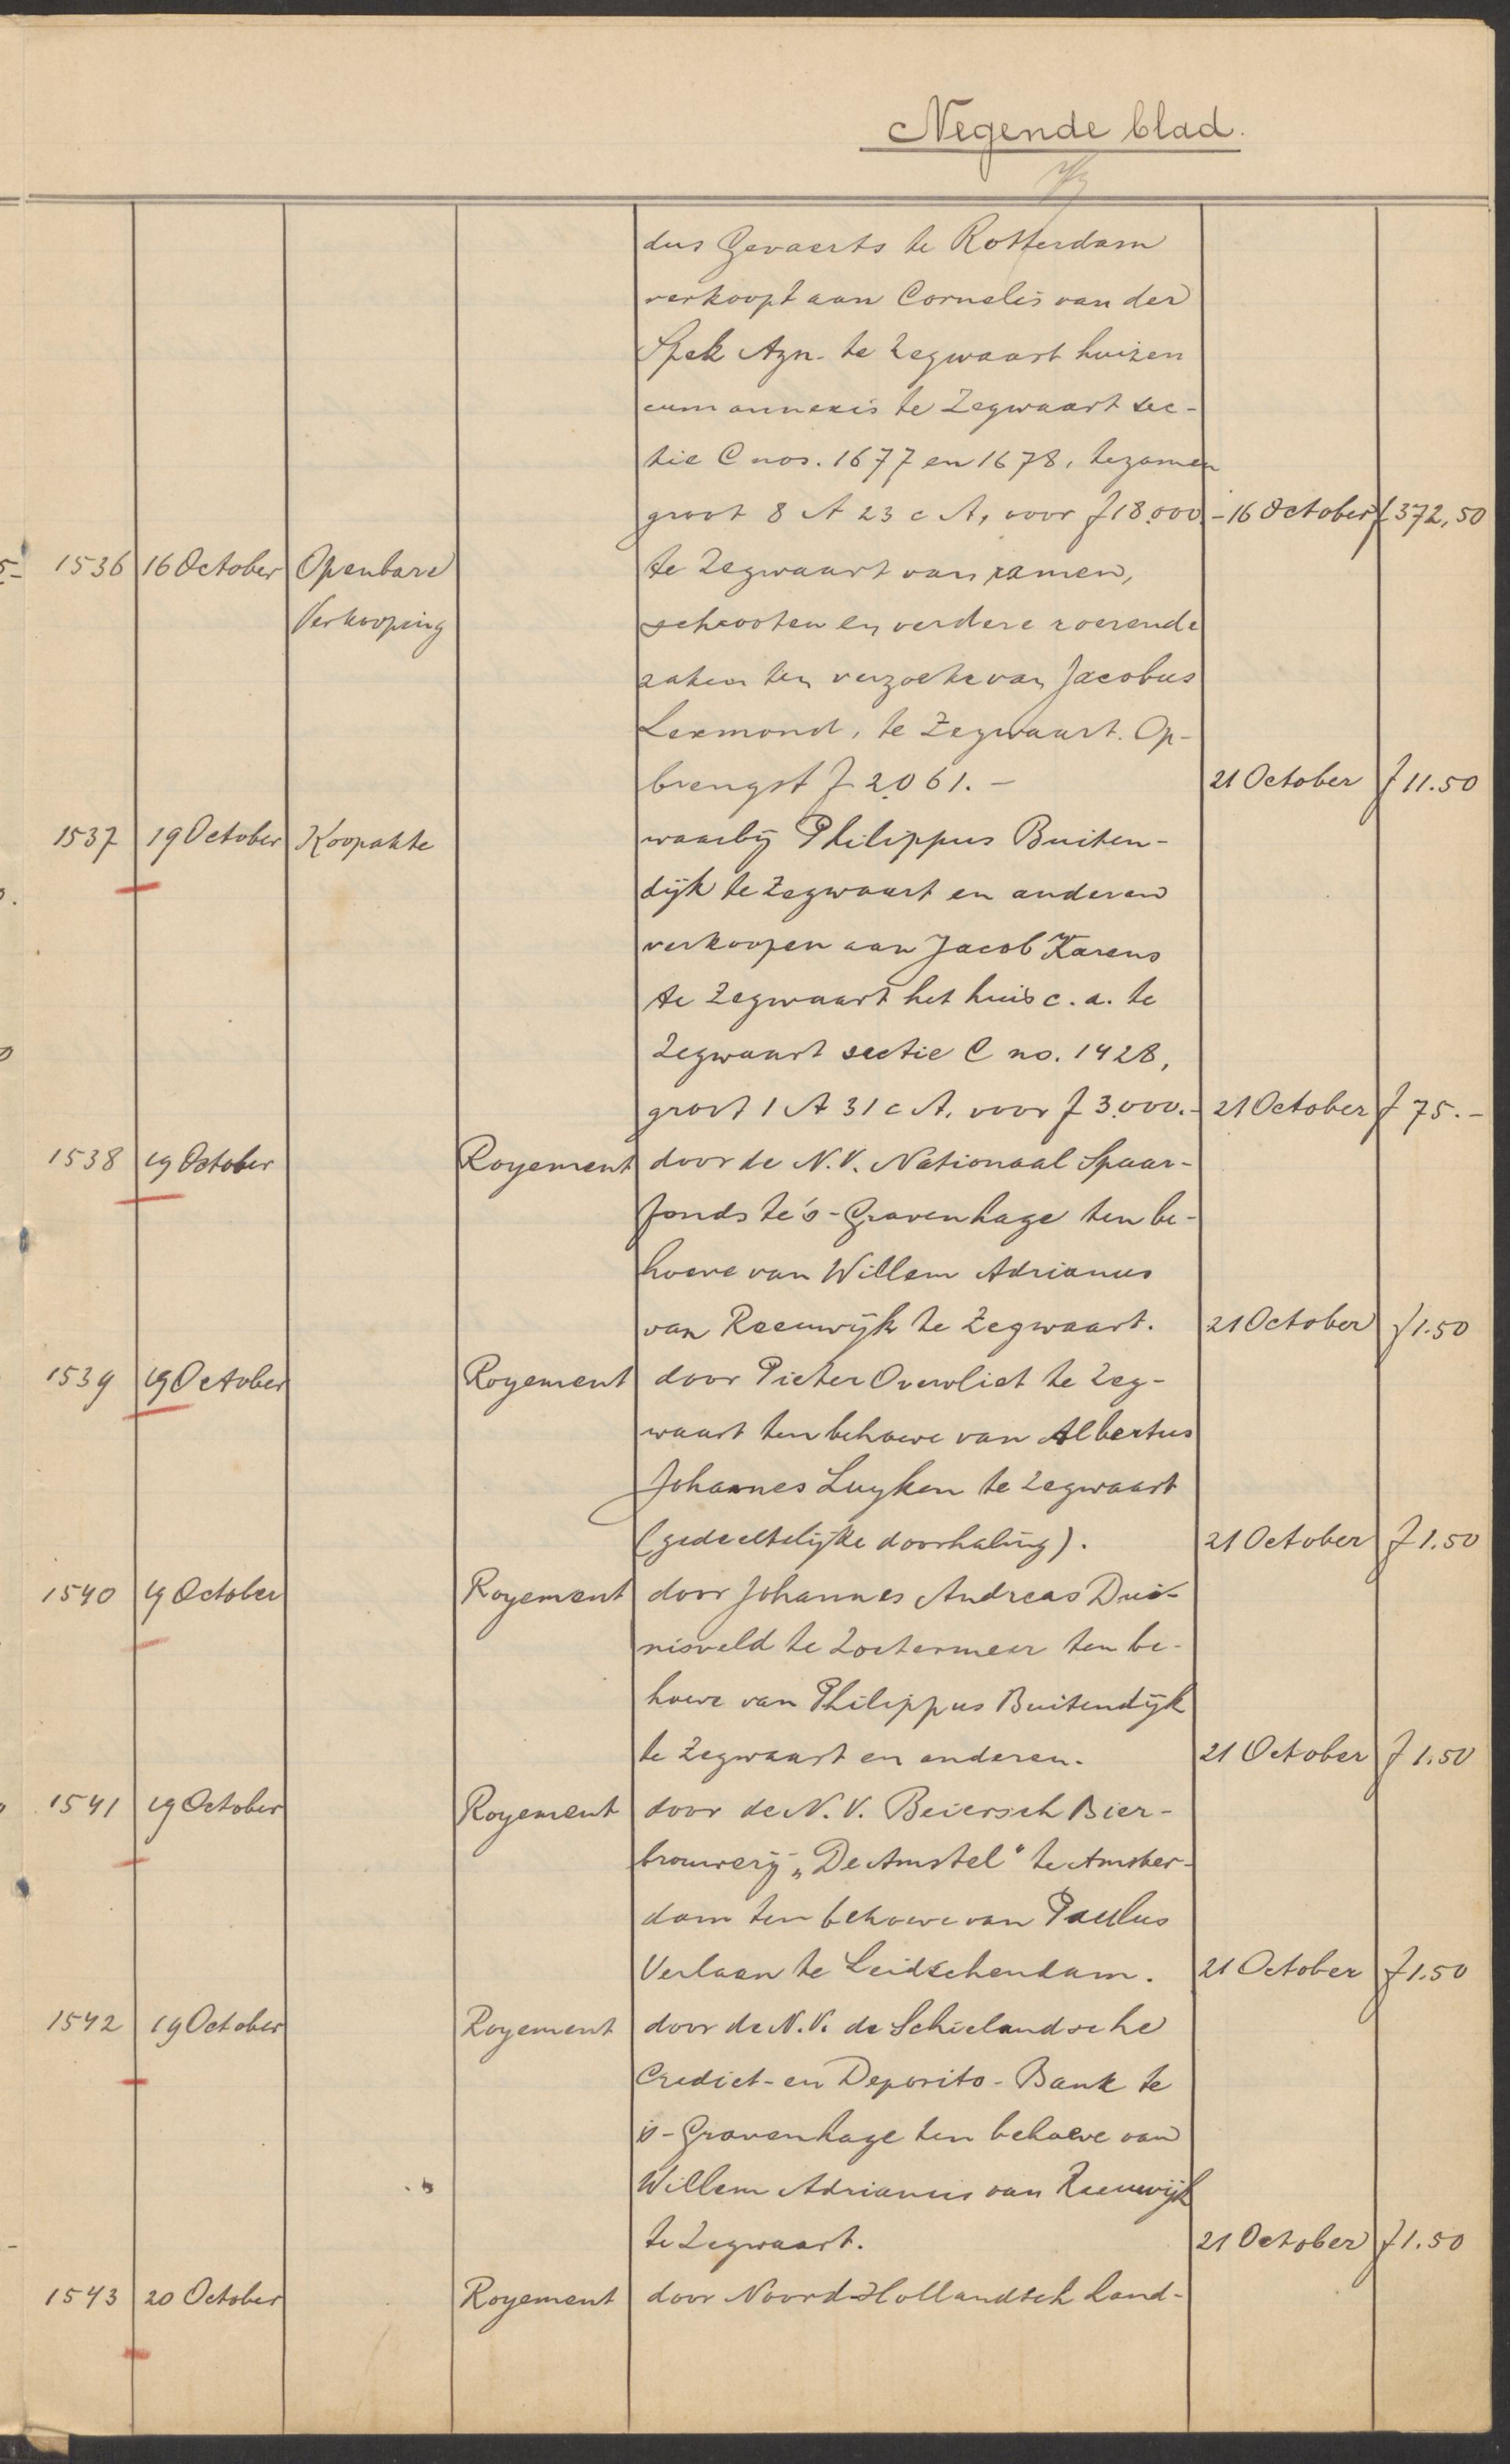 Negende blad.
dus Gevaerts te Rotterdam
verkoopt aan Cornelis van der
Spek Azn. te Zegwaart huizen
cum annexis te Zegwaart sec-
tie C nos. 1677 en 1678, tezamen
groot 8 A 23 c A, voor f 18.000.- 16 October f 372,50
1536 16 October Openbare te Zegwaart van ramen,
Verkooping schrooten en verdere roerende
zaken ten verzoeke van Jacobus
Lexmond, te Zegwaart. Op-
brengst f 2.061.- 21 October f 11.50
1537 19 October Koopakte waarbij Philippus Buiten-
dijk te Zegwaart en anderen
verkoopen aan Jacob Karens
te Zegwaart het huis c.a. te
Zegwaart sectie C no. 1428,
groot 1 A 31 c A, voor f 3.000.- 21 October f 75.-
1538 19 October Royement door de N.V. Nationaal Spaar-
fonds te 's-Gravenhage ten be-
hoeve van Willem Adrianus
van Reeuwijk te Zegwaart. 21 October f 1.50
1539 19 October Royement door Pieter Overvliet te Zeg-
waart ten behoeve van Albertus
Johannes Luyken te Zegwaart
(gedeeltelijke doorhaling). 21 October f 1.50
1540 19 October Royement door Johannes Andreas Dui-
nisveld te Zoetermeer ten be-
hoeve van Philippus Buitendijk
te Zegwaart en anderen. 21 October f 1.50
1541 19 October Royement door de N.V. Beiersch Bier-
brouwerij „De Amstel" te Amster-
dam ten behoeve van Paulus
Verlaan te Leidschendam. 21 October f 1.50
1542 19 October Royement door de N.V. de Schielandsche
Crediet- en Deposito-Bank te
's-Gravenhage ten behoeve van
Willem Adrianus van Reeuwijk
te Zegwaart. 21 October f 1.50
1543 20 October Royement door Noord-Hollandsch Land-